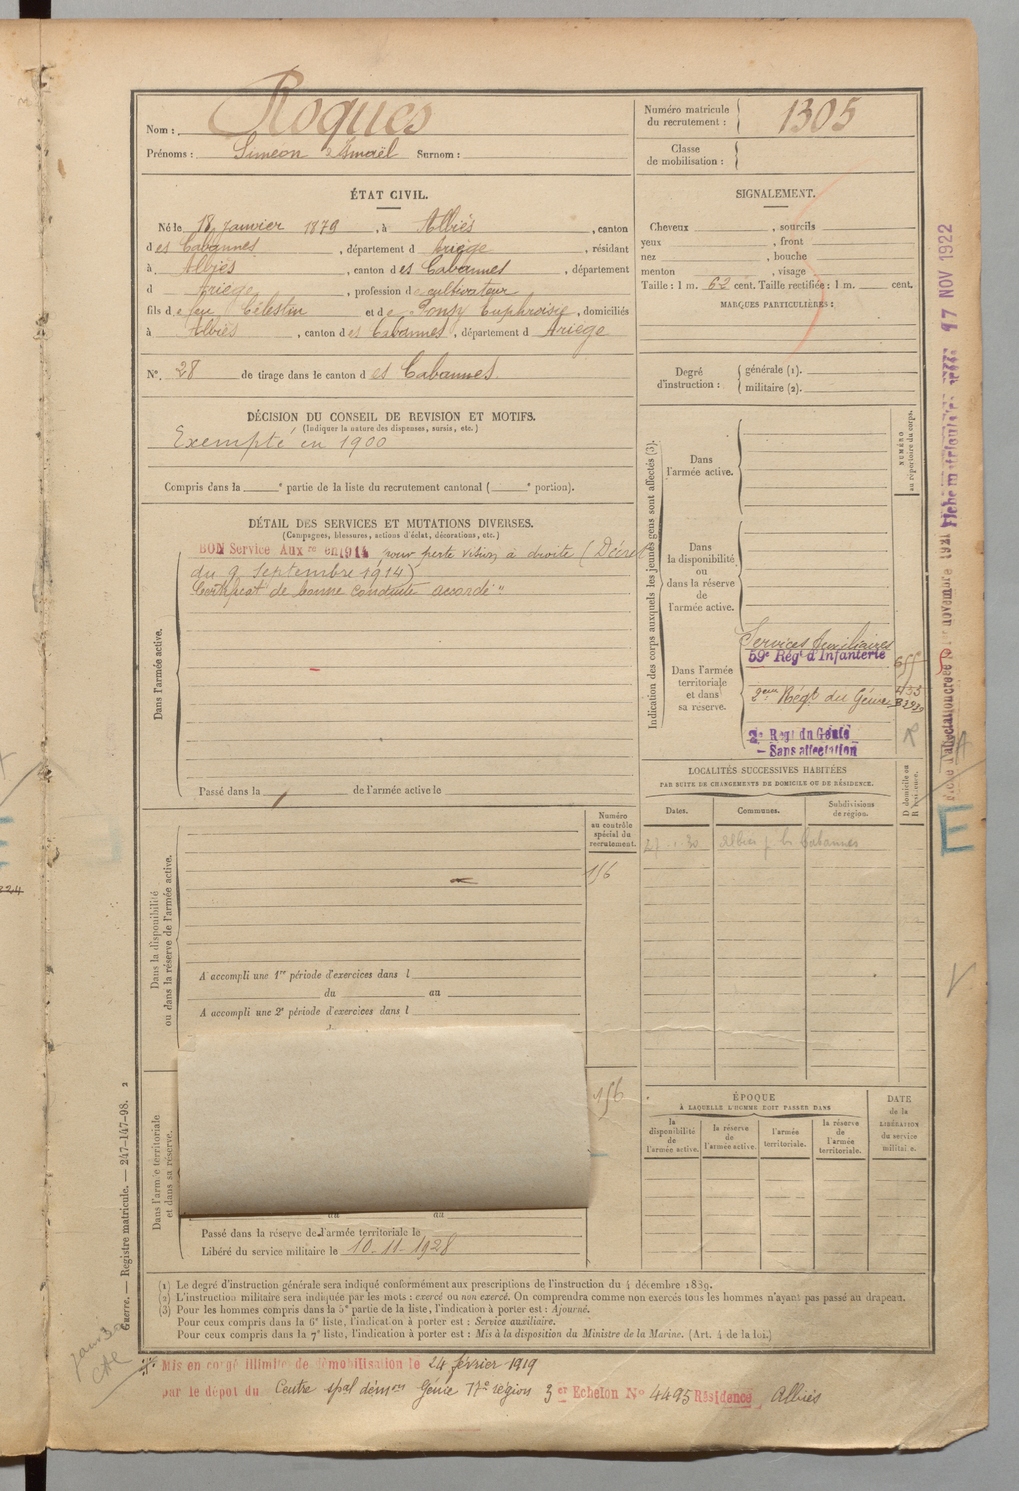 Nom : Roques
Prénoms : Siméon Ismaël Surnom :
Numéro matricule du recrutement : 1305
Classe de mobilisation :
ÉTAT CIVIL.
Né le 18 Janvier 1879, à Albiés, canton
des Cabannes, département d Ariège, résidant
à Albiés, canton des Cabannes, département
d Ariège, profession de cultivateur
fils de feu Célestin et de Euphrosie, domiciliés
à Albiés, canton des Cabannes, département d Ariège
N°. 28 de tirage dans le canton des Cabannes.
SIGNALEMENT.
Cheveux , sourcils
yeux , front
nez , bouche
menton , visage
Taille : 1 m. 62 cent. Taille rectifiée : 1 m. cent.
MARQUES PARTICULIÈRES :
Degré d'instruction : générale (1).
militaire (2).
DÉCISION DU CONSEIL DE REVISION ET MOTIFS.
(Indiquer la nature des dispenses, sursis, etc.)
Exempté en 1900
Compris dans la e partie de la liste du recrutement cantonal ( e portion).
DÉTAIL DES SERVICES ET MUTATIONS DIVERSES.
(Campagnes, blessures, actions d'éclat, décorations, etc.)
BON Service Auxre en 1914 pour perte vision à droite (Décret
du 9 Septembre 1914)
Certificat de bonne conduite accordé "
Dans l'armée active.
Passé dans la de l'armée active le
Indication des corps auxquels les jeunes gens sont affectés (3).
NUMÉRO au répertoire du corps.
Dans l'armée active.
Dans la disponibilité ou dans la réserve de l'armée active.
Dans l'armée territoriale et dans sa réserve.
Services Auxiliaires
59e Régt d'Infanterie
2eme Régt du Génie
2e Regt du Génie
- Sans affectation
LOCALITÉS SUCCESSIVES HABITÉES
PAR SUITE DE CHANGEMENTS DE DOMICILE OU DE RÉSIDENCE.
Dates.
Communes.
Subdivisions de région.
D domicile ou R résidence.
Albiés Cabannes
Dans la disponibilité ou dans la réserve de l'armée active.
Numéro au contrôle spécial du recrutement.
156
A accompli une 1re période d'exercices dans l
du au
A accompli une 2e période d'exercices dans l
Dans l'armée territoriale et dans sa réserve.
156
du au
Passé dans la réserve de l'armée territoriale le
Libéré du service militaire le 10.11.1928
ÉPOQUE
À LAQUELLE L'HOMME DOIT PASSER DANS
la disponibilité de l'armée active.
la réserve de l'armée active.
l'armée territoriale.
la réserve de l'armée territoriale.
DATE de la LIBÉRATION du service militaire.
(1) Le degré d'instruction générale sera indiqué conformément aux prescriptions de l'instruction du 4 décembre 1889.
(2) L'instruction militaire sera indiquée par les mots : exercé ou non exercé. On comprendra comme non exercés tous les hommes n'ayant pas passé au drapeau.
(3) Pour les hommes compris dans la 5e partie de la liste, l'indication à porter est : Ajourné.
Pour ceux compris dans la 6e liste, l'indication à porter est : Service auxiliaire.
Pour ceux compris dans la 7e liste, l'indication à porter est : Mis à la disposition du Ministre de la Marine. (Art. 4 de la loi.)
Mis en congé illimité de démobilisation le 24 février 1919
par le dépôt du Centre spal démon Génie 17e région 3er Echelon N° 4495 Résidence Albiés
Guerre. — Registre matricule. — 247-147-98. 2
17 NOV 1922
E